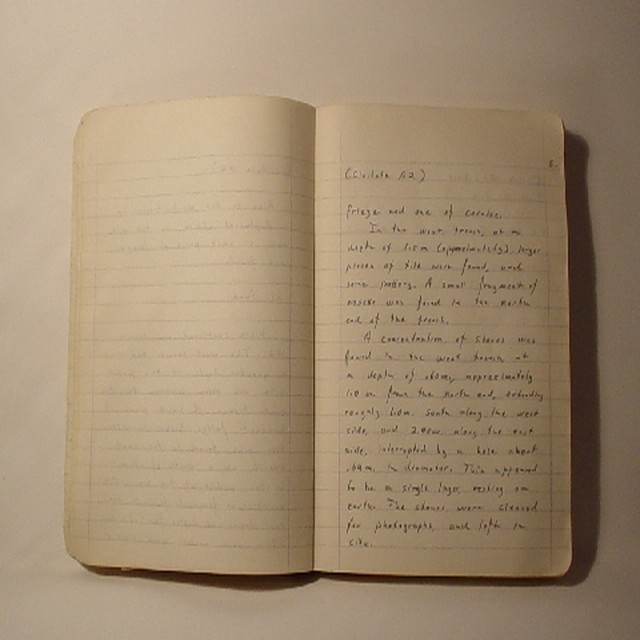 5.
(Cividale A2)
frieze and one of cornice.
In the west trench, at a
depth of 1.5m (approximately), larger
pieces of tile were found, and
some pottery. A small fragment of
mosaic was found in the north
end of the trench.
A concentration of stones was
found in the west trench at
a depth of .60m, approximately
1.0 m from the north end, extending
roughly 1.0m. south along the west
side, and 2.00m. along the east
side, interrupted by a hole about
.69m. in diameter. This appeared
to be a single layer, resting on
earth. The stones were cleaned
for photographs, and left in
situ.